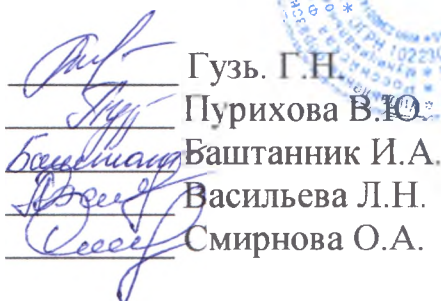 Гузь. Г.Н.
Пурихова В.Ю.
Баштанник И.А.
Васильева Л.Н.
Смирнова О.А.